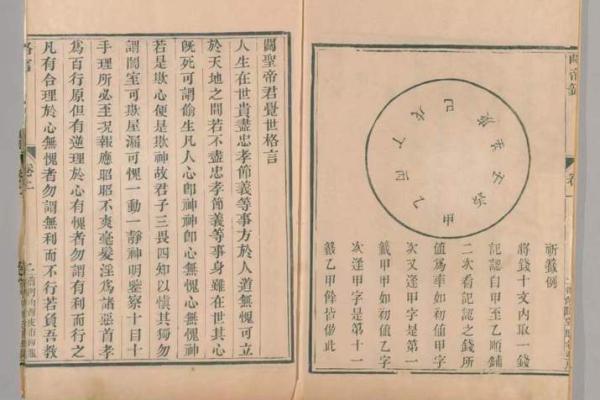 卷一
甲
乙
丙
丁
戊
己
庚
辛
壬
癸
祈籤例
將錢十文內取一錢
記認自甲至乙順鋪
二次看記認之錢所
値爲率如初値甲字
次又逢甲字是第一
籤甲甲如初値乙字
次逢甲字是第十一
籤乙甲餘皆倣此
關聖帝君覺世格言
人生在世貴盡忠孝節義等事方於人道無愧可立
於天地之間若不盡忠孝節義等事身雖在世其心
旣死可謂偷生凡人心卽神神卽心無愧心無愧神
若是欺心便是欺神故君子三畏四知以愼其獨勿
謂闇室可欺屋漏可愧一動一靜神明鑒察十目十
手理所必至况報應昭昭不爽毫髮淫爲諸惡首孝
爲百行原但有逆理於心有愧者勿謂有利而行之
凡有合理於心無愧者勿謂無利而不行若負吾教
格言
卷上